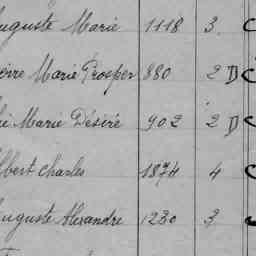 Auguste Marie 1118 3
Pierre Marie Prosper 880 2 D
Marie Désiré 902 2 D
Albert Charles 1874 4
Auguste Alexandre 1230 3